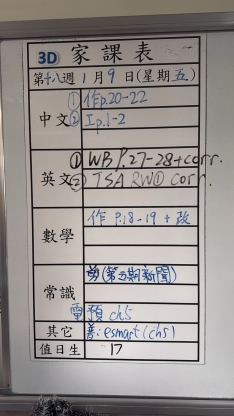 3D 家課表
第十八週 1月 9日(星期五)
中文 ① 作p.20-22
② I p.1-2
英文 ① WB P.27-28+corr.
② TSA RW① corr.
數學 作 P.18-19 + 改
常識 剪(第五期新聞)
預 ch5
其它 普: esmart(ch5)
值日生 17